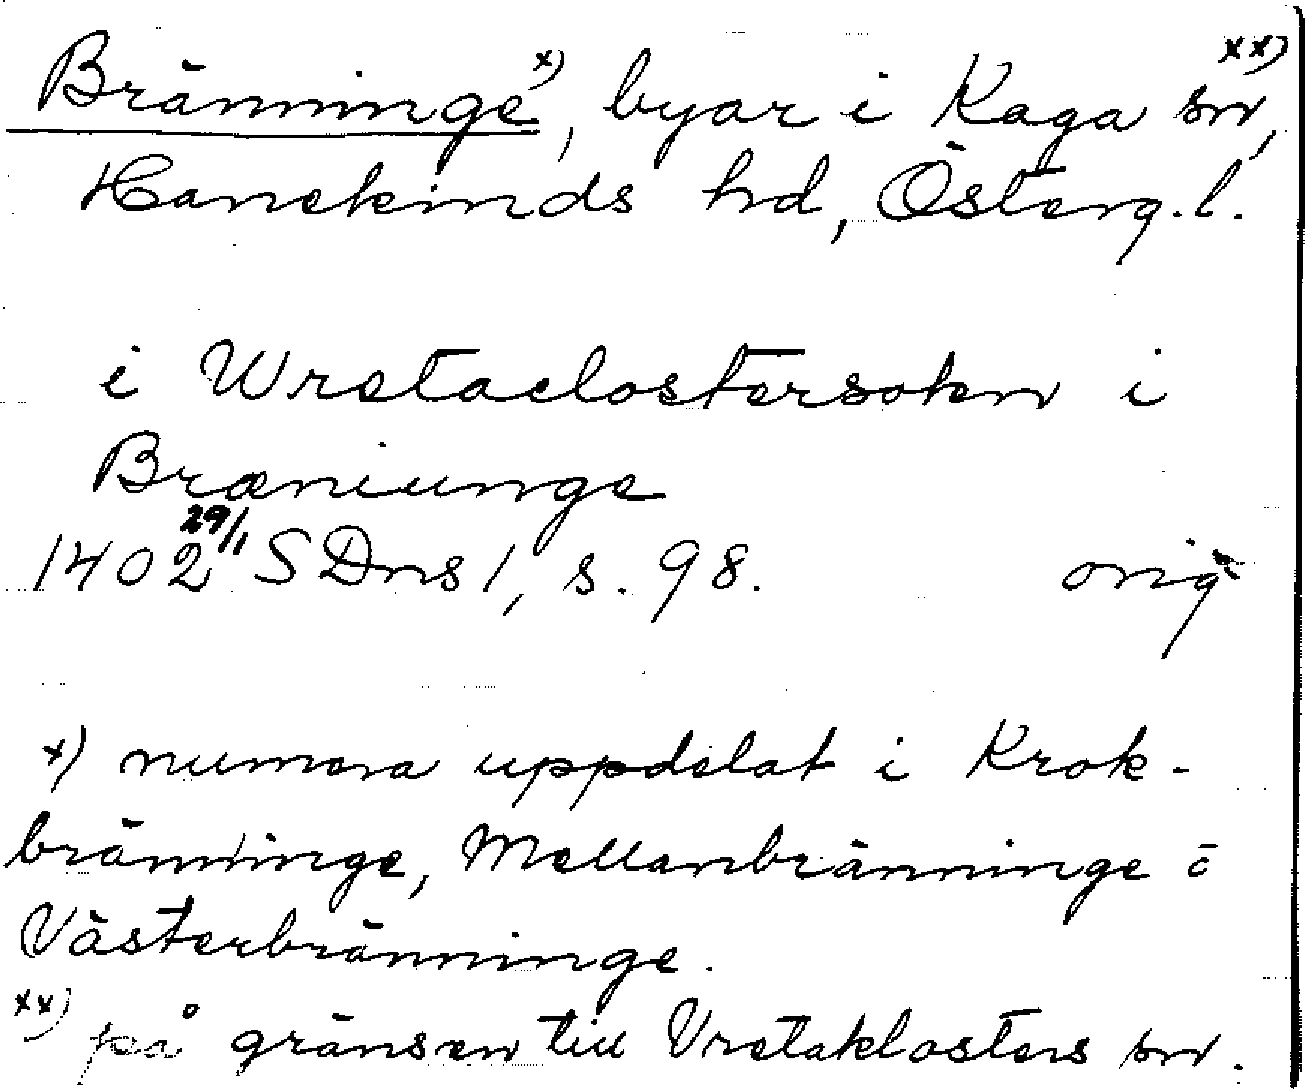 Bränninge x), byar i Kaga sn xx),
Hanekinds hd, Österg.l.
i Wretaclostersokn i
Bræniunge
1402 29/1 SDns 1, s. 98. orig
x) numera uppdelat i Krok-
bränninge, Mellanbränninge o
Västerbränninge.
xx) på gränsen till Vretaklosters sn.